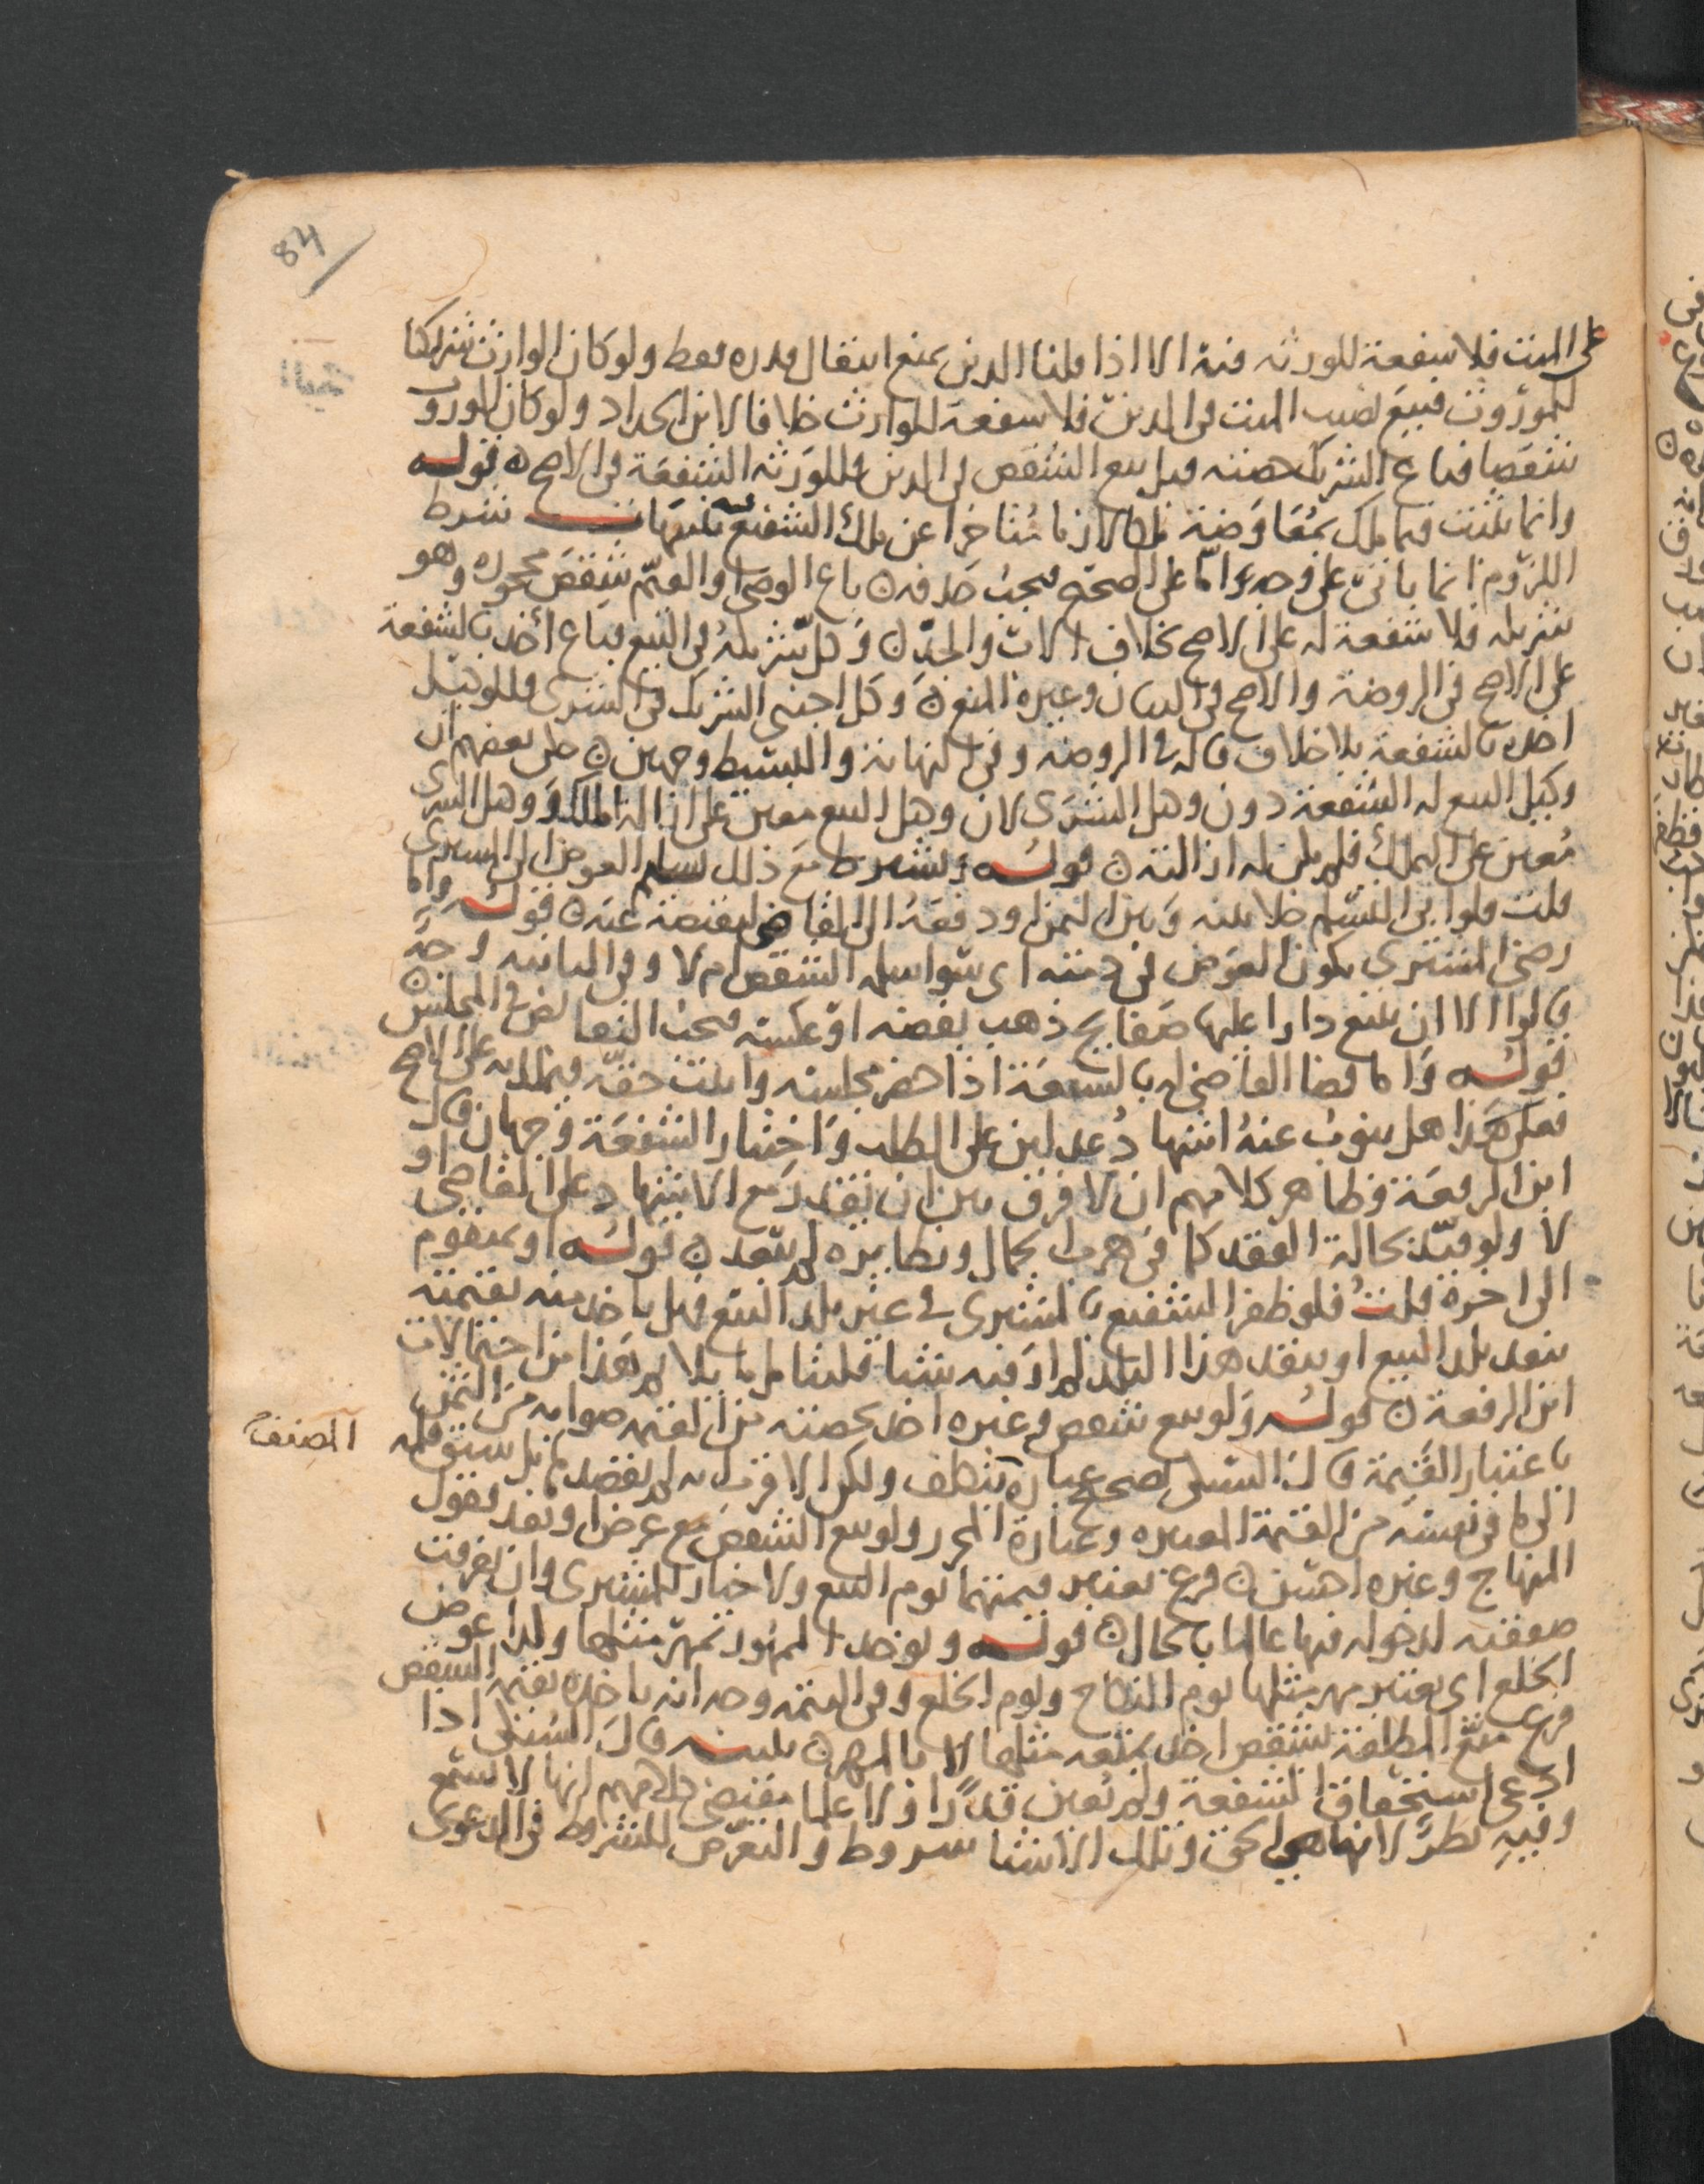 84
على الميت فلا شفعة للورثه فيه الا اذا قلنا الدين يمنع انتقال قدره فقط ولو كان الوارث شريكا
للموروث فبيع نصيب الميت في الدين فلا شفعة للوارث خلافا لابن الحداد ولو كان للموروث
شقصا فباع الشريك حصته قبل بيع الشقص في الدين فللورثه الشفعة في الاصح قوله
وانما تثبت فيما ملك بمعاوضة ملكا لازما متاخرا عن ملك الشفيع شرط
اللزوم انما ياتي على وجه اما على الصحيح فيجب حذفه باع الوصي والقيم شقص محجوره وهو
شريكه فلا شفعة له على الاصح بخلاف الاب والجد وكل شريكه في البيع فباع اخذ بالشفعة
على الاصح في الروضة والاصح في البيان وغيره المنع وكل اجنبي الشريك في الشرى فللوكيل
اخذه بالشفعة بلا خلاف قاله في الروضه وفي النهاية والبسيط وجهين بعضهم ان
وكيل البيع له الشفعة دون وكيل الشرى لان وكيل البيع معين على ازالة الملك ووكيل الشرى
معين على الملك فلم يكن له ازالته قوله ويشترط مع ذلك تسليم العوض الى المشترى
قلت فلو ابى التسليم خلا بينه وبين الثمن او دفعه الى القاضي ليقبضه عنه قوله واما
رضى المشتري بكون العوض في ذمته اي سوا سلم الشقص ام لا وفي الثانيه وجه
قالوا الا ان يبيع دارا عليها صفايح ذهب بفضه او عكسه فيجب التقابض في المجلس
قوله واما قضا القاضي له بالشفعة اذا حضر مجلسه واثبت حقه فيملك به على الاصح
فعلى هذا هل ينوب عنه اشهاد عدلين على الطلب واختيار الشفعة وجهان قال
ابن الرفعة وظاهر كلامهم ان لا فرق بين ان يقدر مع الاشهاد على القاضي او
لا ولو قيد بحالة الفقد كما في هرب الجمال ونظايره لم يبعد قوله او بمتقوم
الى اخره قلت فلو ظفر الشفيع بالمشترى في غير بلد البيع فهل ياخذ منه بقيمته
بنقد بلد البيع او بنقد هذا البلد لم ار فيه شيا
ابن الرفعة قوله ولو بيع شقص وغيره اخذه بحصته من القيمه صوابه من الثمن
باعتبار القيمة قال السبكي تصحيح عباره بتكلف ولكن الاقرب انه لم يقصد بل سبق قلم
المصنف
الرافعي نفسه من القيمة المعتبره وعبارة المحرر ولو بيع الشقص مع عرض ونقد فقول
المنهاج وغيره احسن فرع تعتبر قيمتهما يوم البيع ولا خيار للمشترى وان تفرقت
صفقته لدخوله فيها عالما بالحال قوله ويوخذ الممهور بمهر مثلها وكذا عوض
الخلع اي يعتبر مهر مثلها يوم النكاح ويوم الخلع وفي التتمه وجه انه ياخذه بقيمة الشقص
فرع متع المطلقة بشقص اخذ بمتعه مثلها لا بالمهر قال السبكي اذا
ادعى استحقاق الشفعة ولم يعين قدرا ولا مقتضى كلامهم انها لا تسمع
وفيه نظر لانها هي الحق وتلك الاشيا شروط والتعرض للشروط في الدعوى